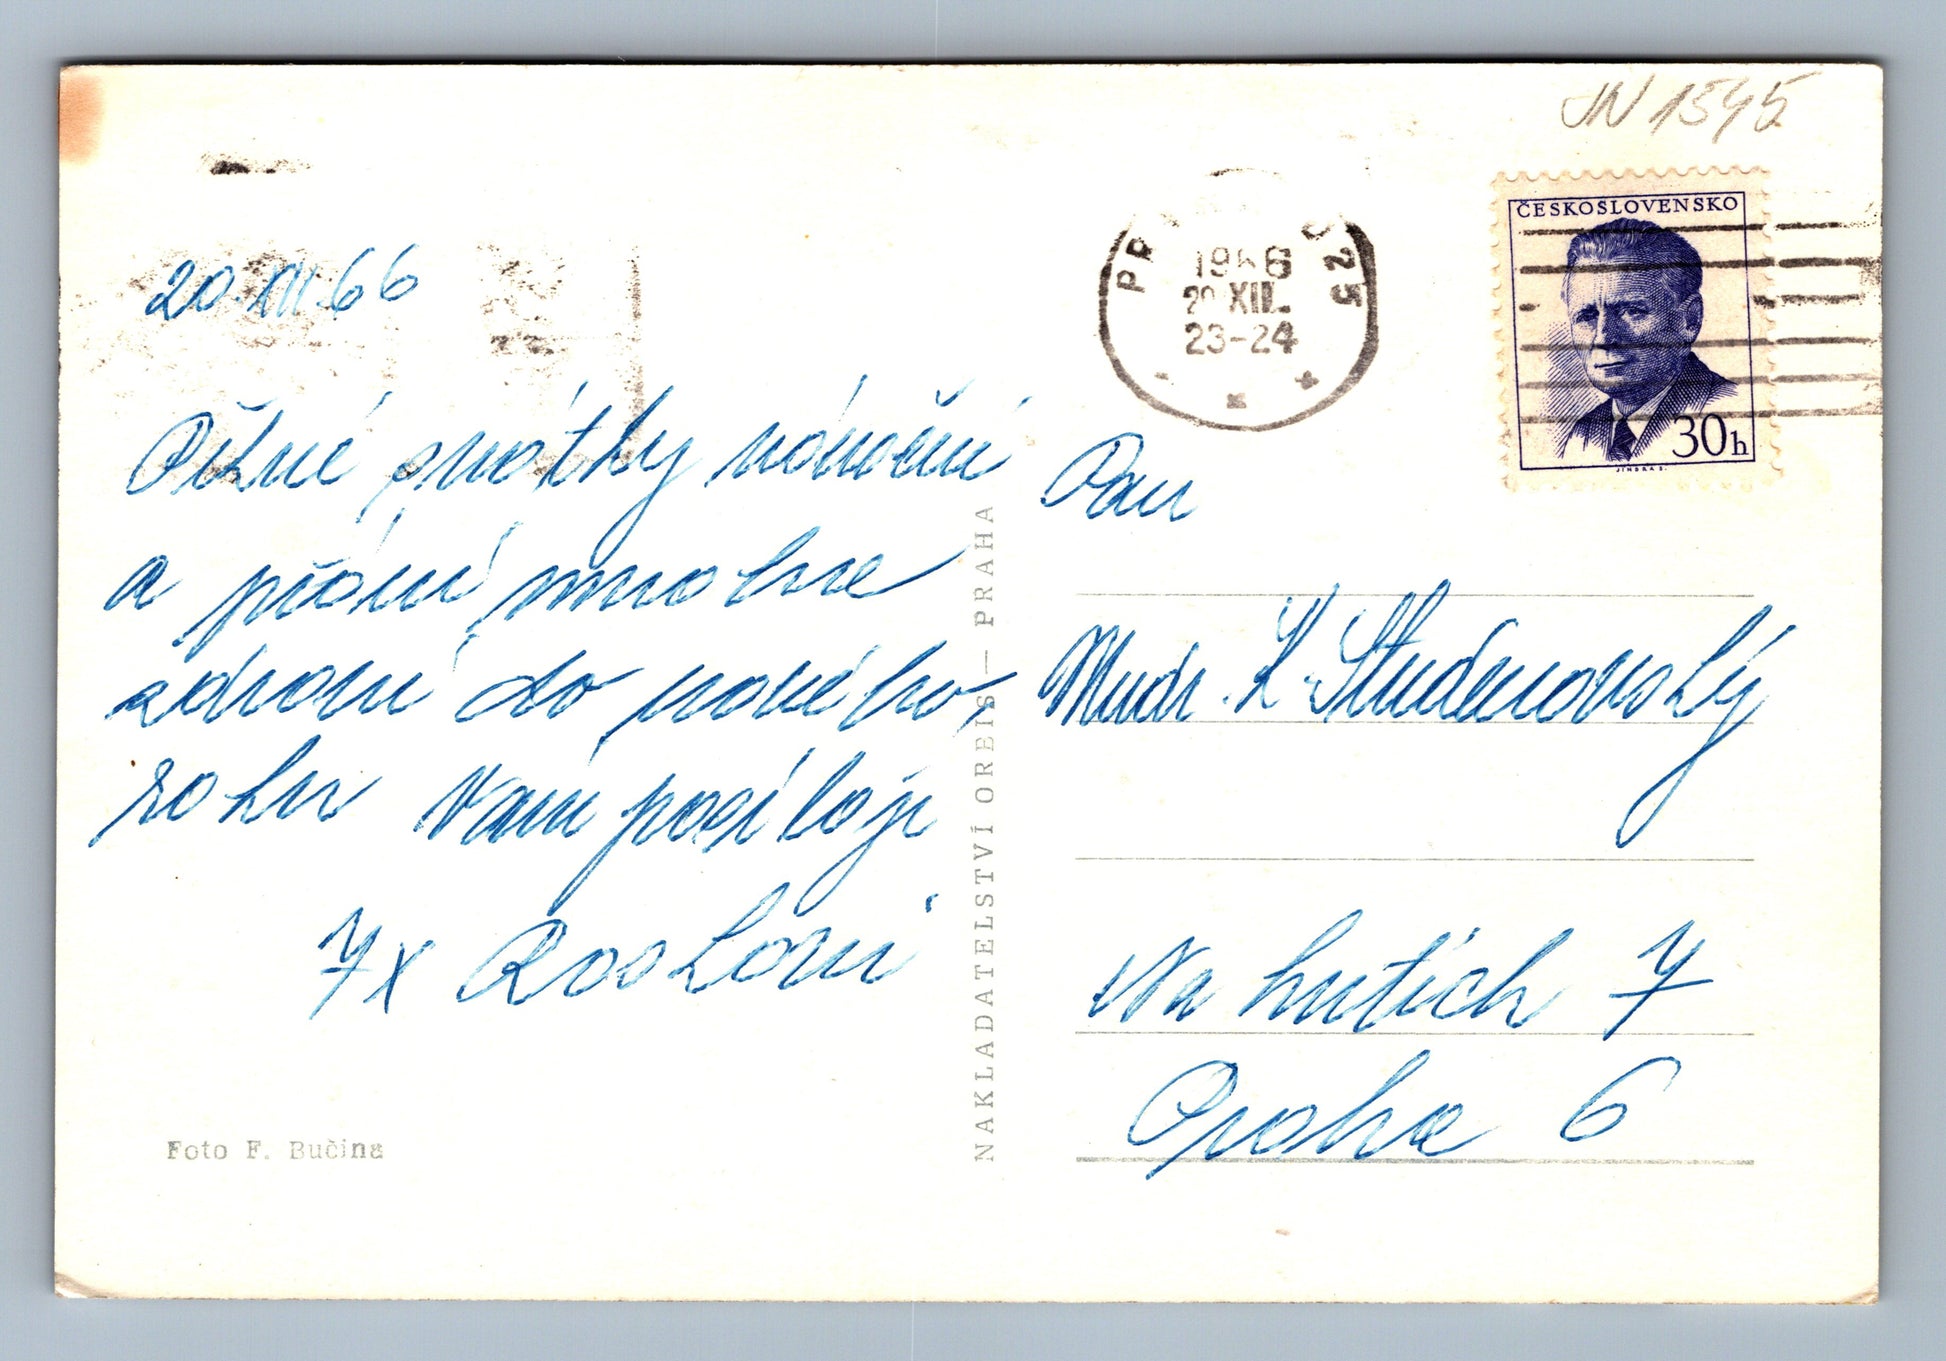 JN 1545
ČESKOSLOVENSKO
30h
JINDRA S.
1966
20 XII
23-24
20.XII.66
Pěkné svátky vánoční
a přání mnoho
zdraví do nového
roku Vám posílají
7x
Foto F. Bučina
NAKLADATELSTVÍ ORBIS — PRAHA
Pan
Mudr. K. Studenovský
Na hutích 7
Praha 6